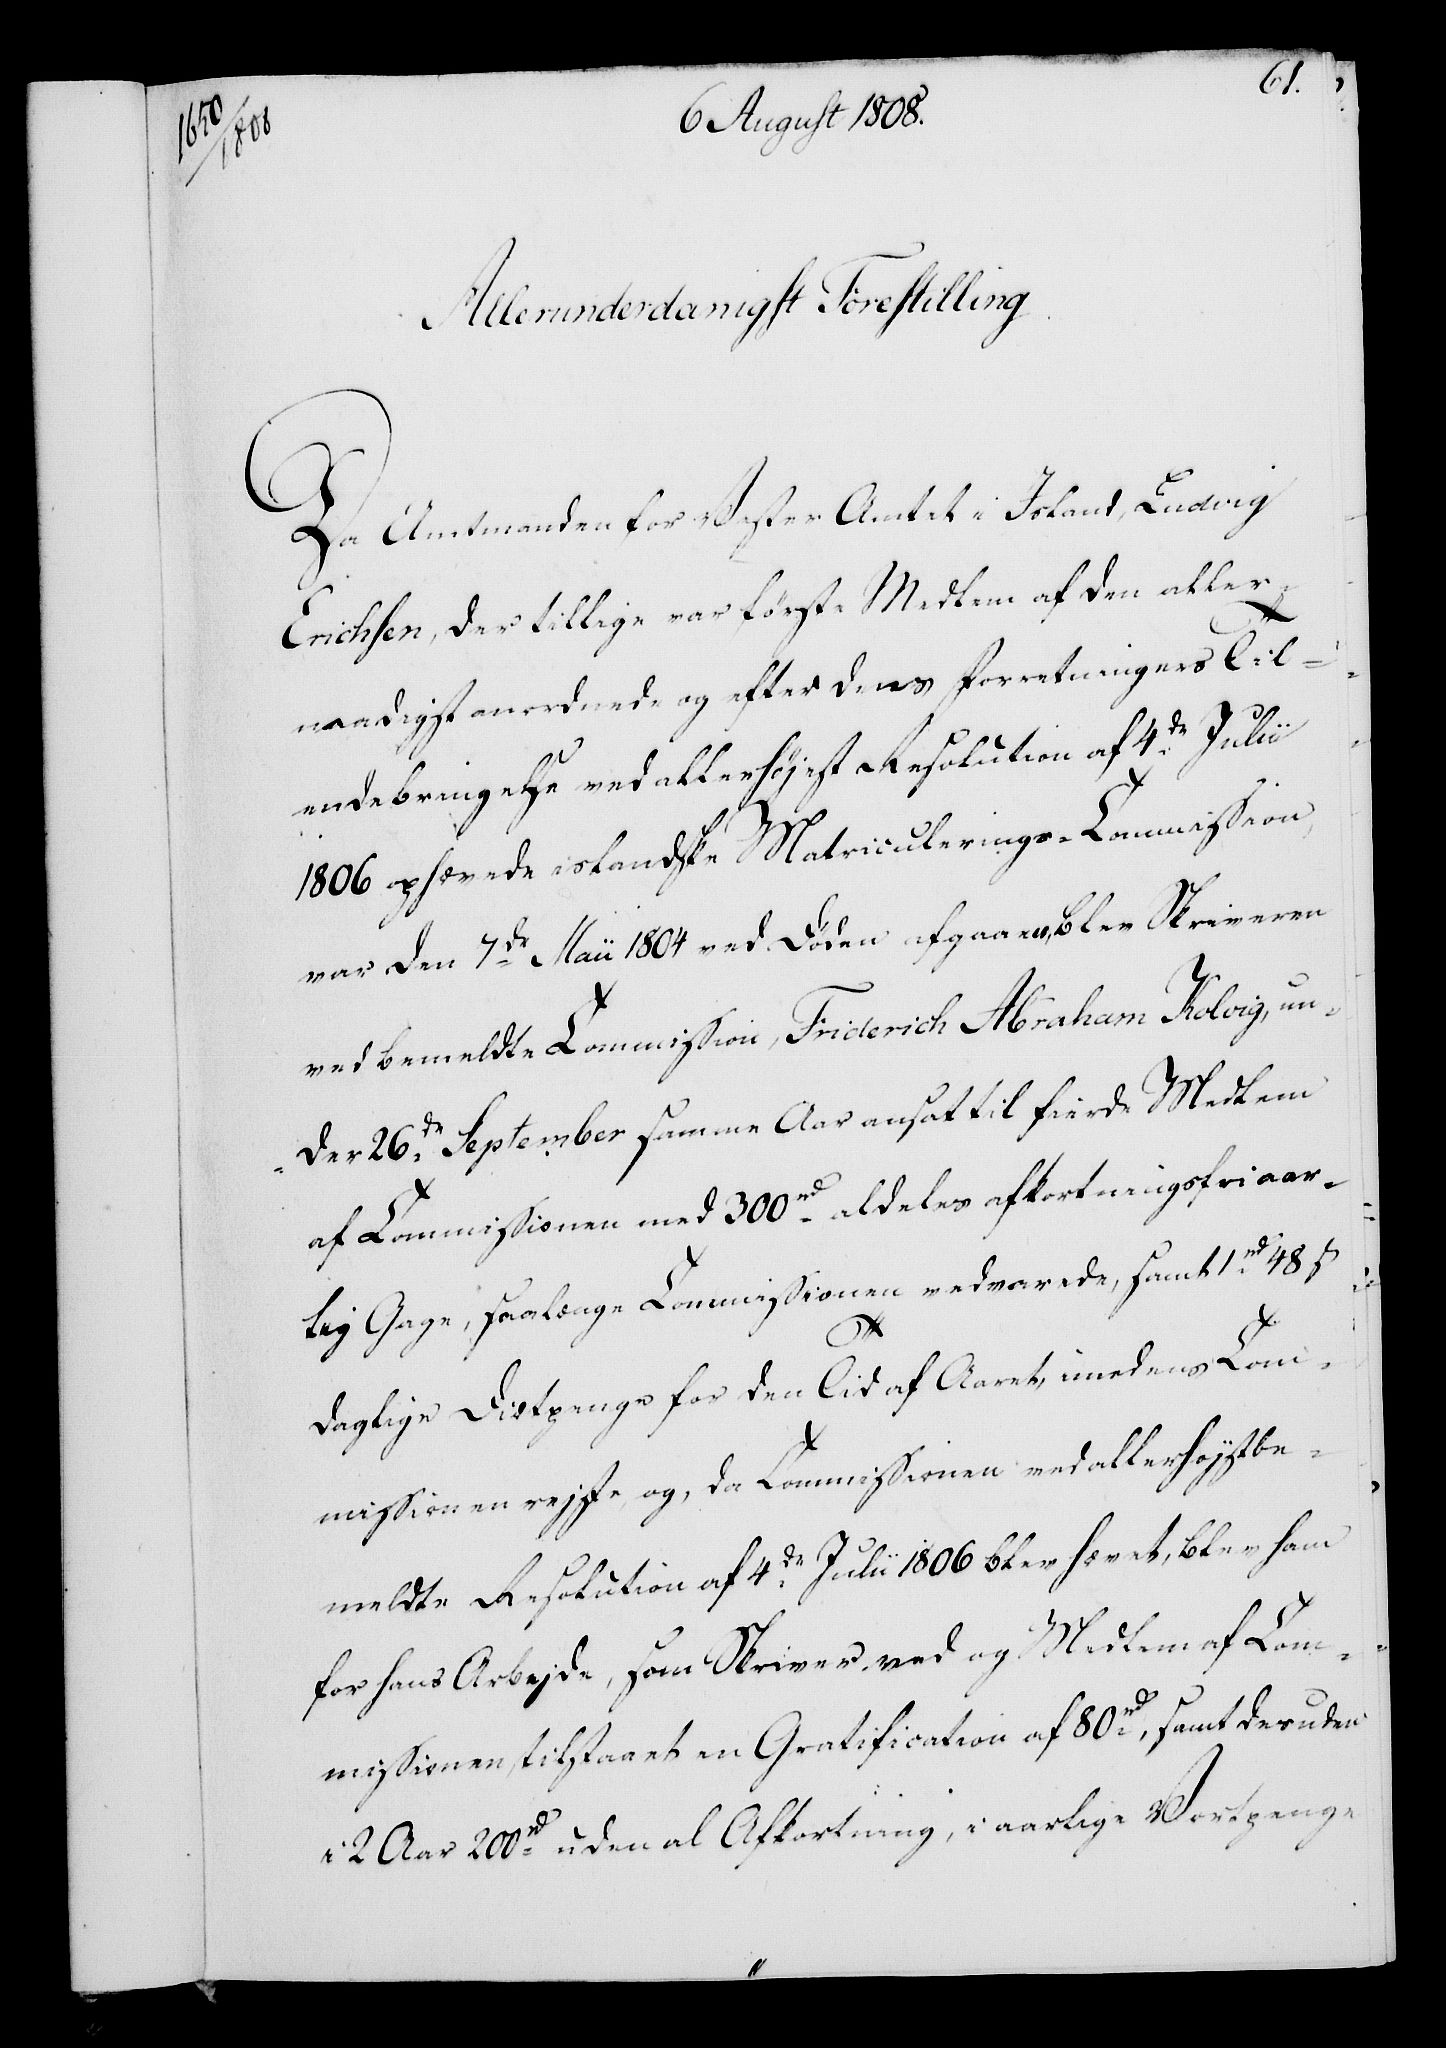 61.
1650/1808
6 August 1808.
Allerunderdanigst Forestilling
Da Amtmanden for Vester Amtet i Island, Ludvig
Erichsen, der tillige var förste Medlem af den aller-
naadigst anordnede og efter dens Forretningers Til-
endebringelse ved allerhöjest Resolution af 4de Julii
1806 ophævede islandske Matriculerings-Commission,
var den 7de Maii 1804 ved Döden afgaaen, blev Skriveren
ved bemeldte Commission, Friderich Abraham Kolvig, un-
der 26de September samme Aar ansat til fierde Medlem
af Commissionen med 300rd aldeles afkortningsfri aar-
lig Gage, saalænge Commissionen vedvarede, samt 1rd 48 s
daglige Diætpenge for den Tid af Aaret, imedens Com-
missionen rejste, og, da Commissionen ved allerhöjstbe-
meldte Resolution af 4de Julii 1806 blev hævet, blev ham
for hans Arbejde, som Skriver ved og Medlem af Com-
missionen, tilstaaet en Gratification af 80rd, samt desuden
i 2 Aar 200rd uden al Afkortning, i aarlige Vartpenge